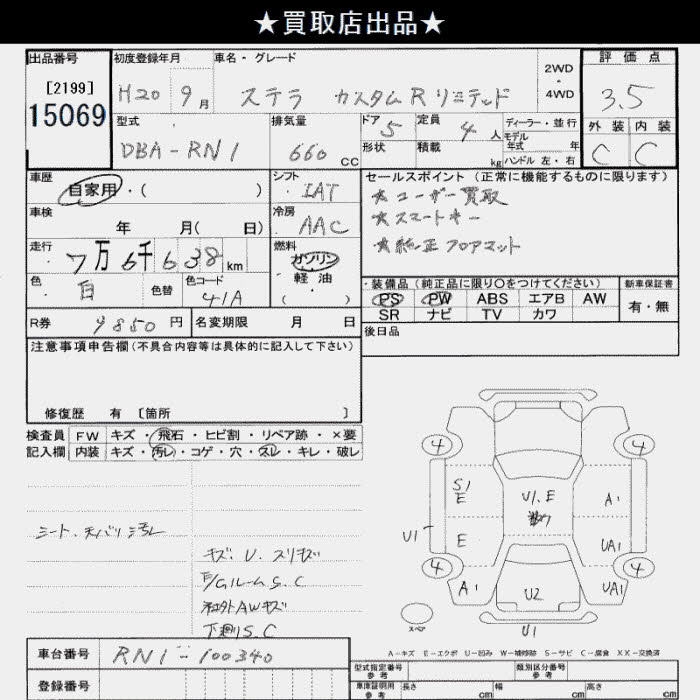 ★買取店出品★
出品番号 初度登録年月 車名・グレード 2WD ・ 4WD 評価点
[2199] 15069 H20 9月 ステラ カスタムRリミテッド 3.5
型式 排気量 ドア 定員 ディーラー・並行 外装 内装
DBA-RN1 660 CC 5 4人 モデル年式 年 C C
形状 積載 kg ハンドル 左・右
車歴 シフト セールスポイント(正常に機能するものに限ります)
自家用・( ) IAT ★ユーザー買取
車検 冷房 ★スマートキー
年 月( 日) AAC ★純正フロアマット
走行 燃料
7万6千638km ガソリン
色 色替 色コード 軽油 ・装備品(純正品に限り○をつけてください) 新車保証書
白 41A ・( ) PS PW ABS エアB AW 有・無
R券 9850円 名変期限 月 日 SR ナビ TV カワ
注意事項申告欄(不具合内容等は具体的に記入して下さい) 後日品
修復歴 有 [箇所 ]
検査員 FW キズ・飛石・ヒビ割・リペア跡・×要
記入欄 内装 キズ・汚レ・コゲ・穴・スレ・キレ・破レ
シート、天バリ汚レ
キズ・U.スリキズ
E/Gルーム S.C
社外AWキズ
下廻りS.C
4 4
S1 E U1.E A1
U1 E UA1
4 4
A1 U2 UA1
スペア U1
A-キズ E-エクボ U-凹み W-補修跡 S-サビ C-腐食 XX-交換済
車台番号 RN1-100340
型式指定番号 参考 類別区分番号 参考
登録番号 車庫証明用 参考 長さ cm 幅 cm 高さ cm